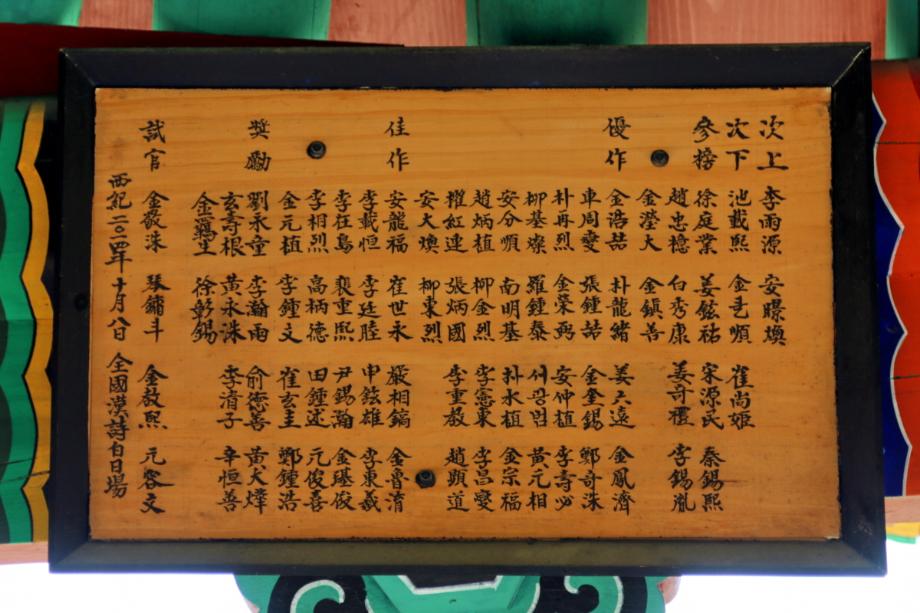 次上 李雨源 安暻煥
次下 池載熙 金孝順 崔尚姬
參榜 徐庭業 姜鉉祐 宋源民 秦錫熙
趙忠檍 白秀康 姜奇禮 李錫胤
金瀅大 金鎭善
優作 金浩喆 朴龍緒 姜六遠 金鳳濟
車周燮 張鍾喆 金奎錫 鄭奇洙
朴再烈 金榮弼 安仲植
柳基燦 羅鍾泰 서광범 黃元相
安分順 南明基 朴水植 金宗福
趙炳植 柳金烈 李憲東 李昌燮
權紅連 張炳國 李重敎 趙顯道
安大煥 柳東烈
佳作 安龍福 崔世永 嚴相鎬 金魯淯
李載恒 李廷睦 申鉉雄 李東羲
李在島 裵重熙 尹錫瀚 金基俊
李相烈 高柄德 田鍾述 元俊喜
金元植 李鍾文 崔玄圭 鄭鍾浩
獎勵 劉永童 李瀚雨 俞德善 黃大燁
玄壽根 黃永洙 李淯子 辛恒善
金鷄生 徐彰錫
試官 金敎洙 琴鏞斗 金敎熙 元容文
西紀二○○四年 十月八日 全國漢詩白日場